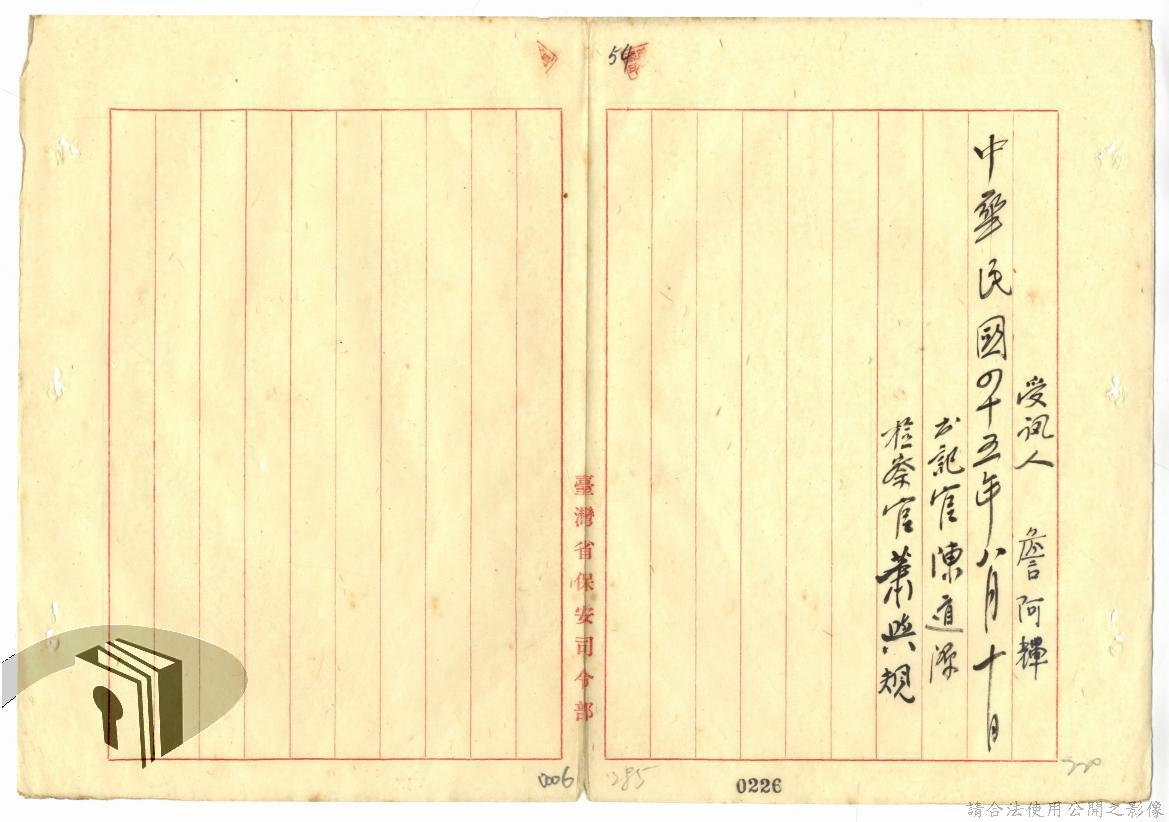 54
受訊人 詹阿輝
中華民國四十五年八月十日
書記官陳道源
檢察官蕭與規
臺灣省保安司令部
0006
285
0226
請合法使用公開之影像